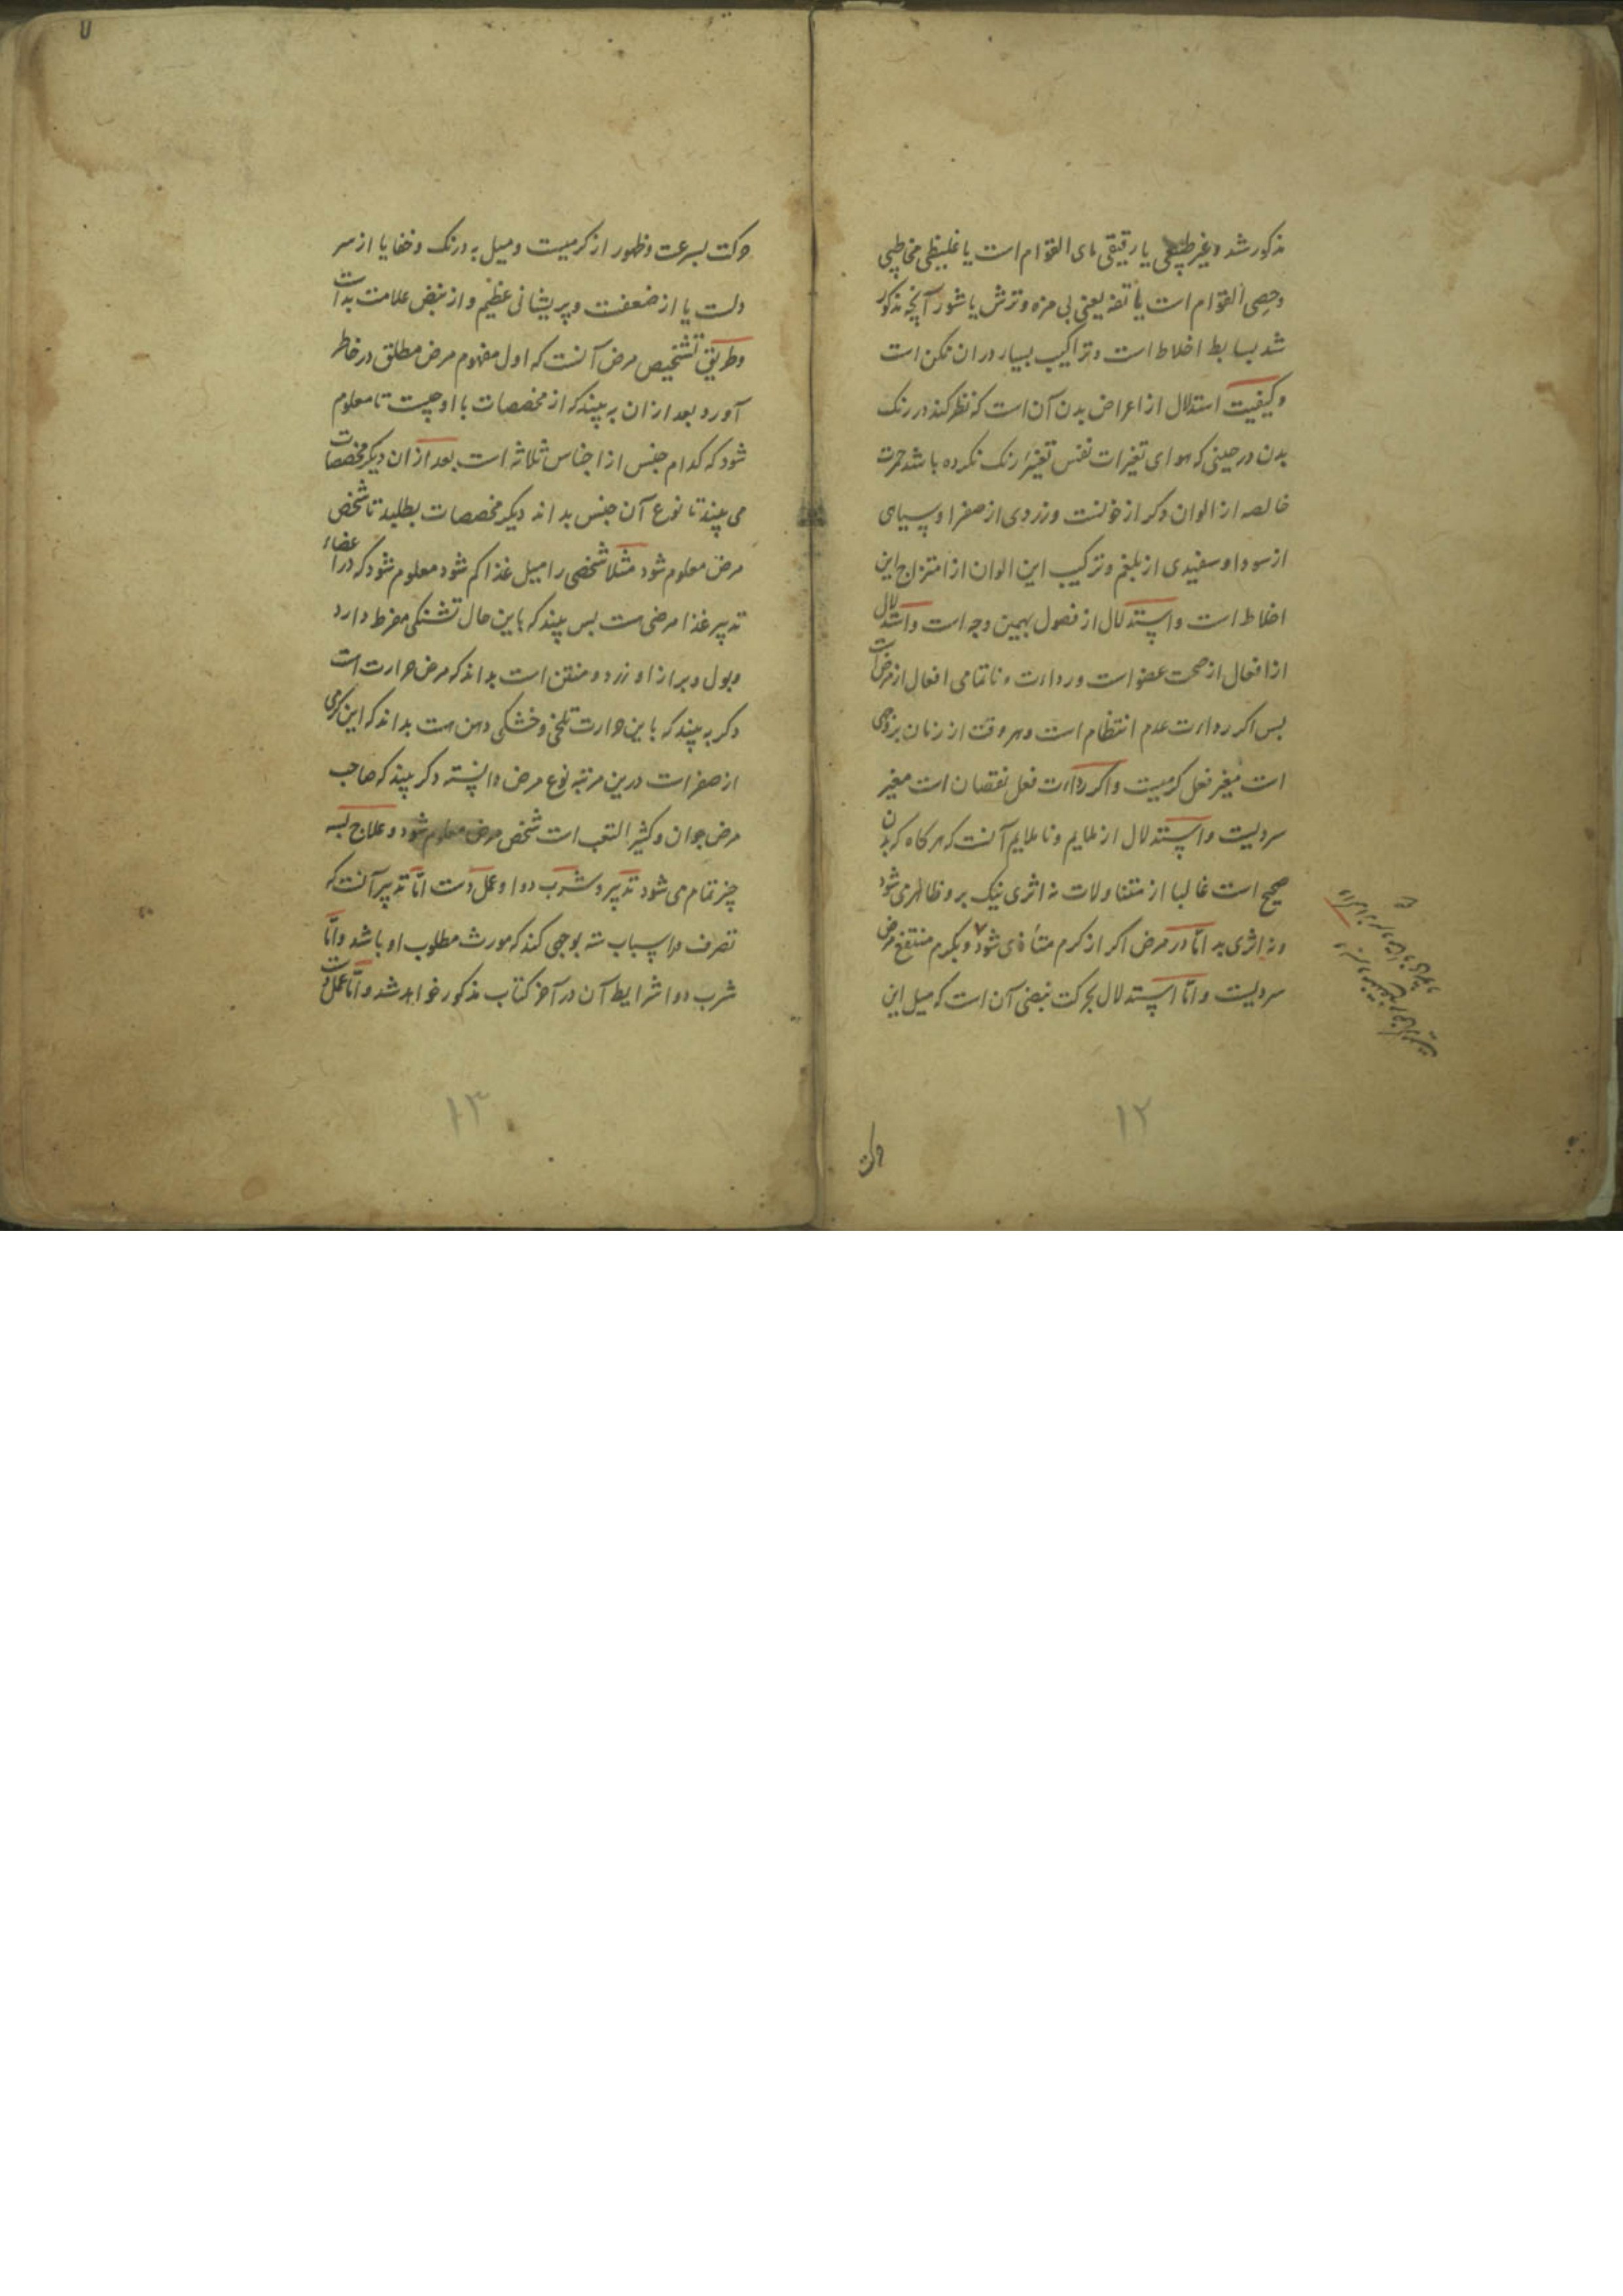 مذکور شد و غیر طبیعی یا رقیقی مای القوام است یا غلیظی مخاطی
و جصی القوام است یا تفه یعنی بی مزه و ترش یا شور آنچه مذکور
شد بسایط اخلاط است و تراکیب بسیار در ان ممکن است
و کیفیت استدلال از اعراض بدن آن است که نظر کند در رنک
بدن در حینی که هوای تغیرات نفس تغییر رنک نکرده باشد حمرت
خالصه از الوان دکر از خونست و زردی از صفرا و سیاهی
از سودا و سفیدی از بلغم و ترکیب این الوان از امتزاج این
اخلاط است و استدلال از فصول بهمین وجه است و استدلال
از افعال از صحت عضو است و رداءت و ناتمامی افعال از مرض است
بس اکر رداءت عدم انتظام است و هر وقت از زمان بر وجهی
است مغیر فعل کرمیست و اکر رداءت فعل نقصان است مغیر
سردیست و استدلال از ملایم و ناملایم آنست که هر کاه که بدن
صحیح است غالبا از متناولات نه اثری نیک برو ظاهر می شود
و نه اثری بد اما در مرض اکر از کرم متأذی شود و بکرم منتفع مرض
سردیست و اما استدلال بحرکت نبضی آن است که میل این
حرکت
١٢
حرکت بسرعت و ظهور از کرمیست و میل به درنک و خفا یا از سر
دیست یا از ضعفست و پریشانی عظیم و از نبض علامت بد است
و طریق تشخیص مرض آنست که اول مفهوم مرض مطلق در خاطر
آورد بعد از ان به بیند که از مخصصات با او چیست تا معلوم
شود که کدام جنس از اجناس ثلاثه است بعد از ان دیکر مخصصات
می بیند تا نوع آن جنس بداند دیکر مخصصات بطلبد تا شخص
مرض معلوم شود مثلا شخصی را میل غذا کم شود معلوم شود که در اعضاء
تدبیر غذا مرضی ست بس بیند که باین حال تشنکی مفرط دارد
و بول و براز او زرد و منتن است بداند که مرض حرارت است
دکر به بیند که باین حرارت تلخی و خشکی دهن هست بداند که این کرمی
از صفر است درین مرتبه نوع مرض دانسته دکر بیند که صاحب
مرض جوان و کثیر التعب است شخص مرض معلوم شود و علاج بسه
چیز تمام می شود تدبیر و شرب دوا و عمل دست اما تدبیر آنست که
تصرف در اسباب سته بوجهی کند که مورث مطلوب او باشد و اما
شرب دوا شرایط آن در آخر کتاب مذکور خواهد شد و اما عمل دست
١٣